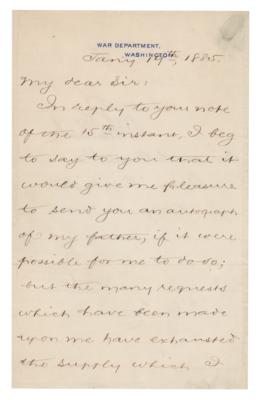 WAR DEPARTMENT,
WASHINGTON
Jan'y 17th, 1885.
My dear Sir:
In reply to your note
of the 15th instant, I beg
to say to you that it
would give me pleasure
to send you an autograph
of my father, if it were
possible for me to do so;
but the many requests
which have been made
upon me have exhausted
the supply which I